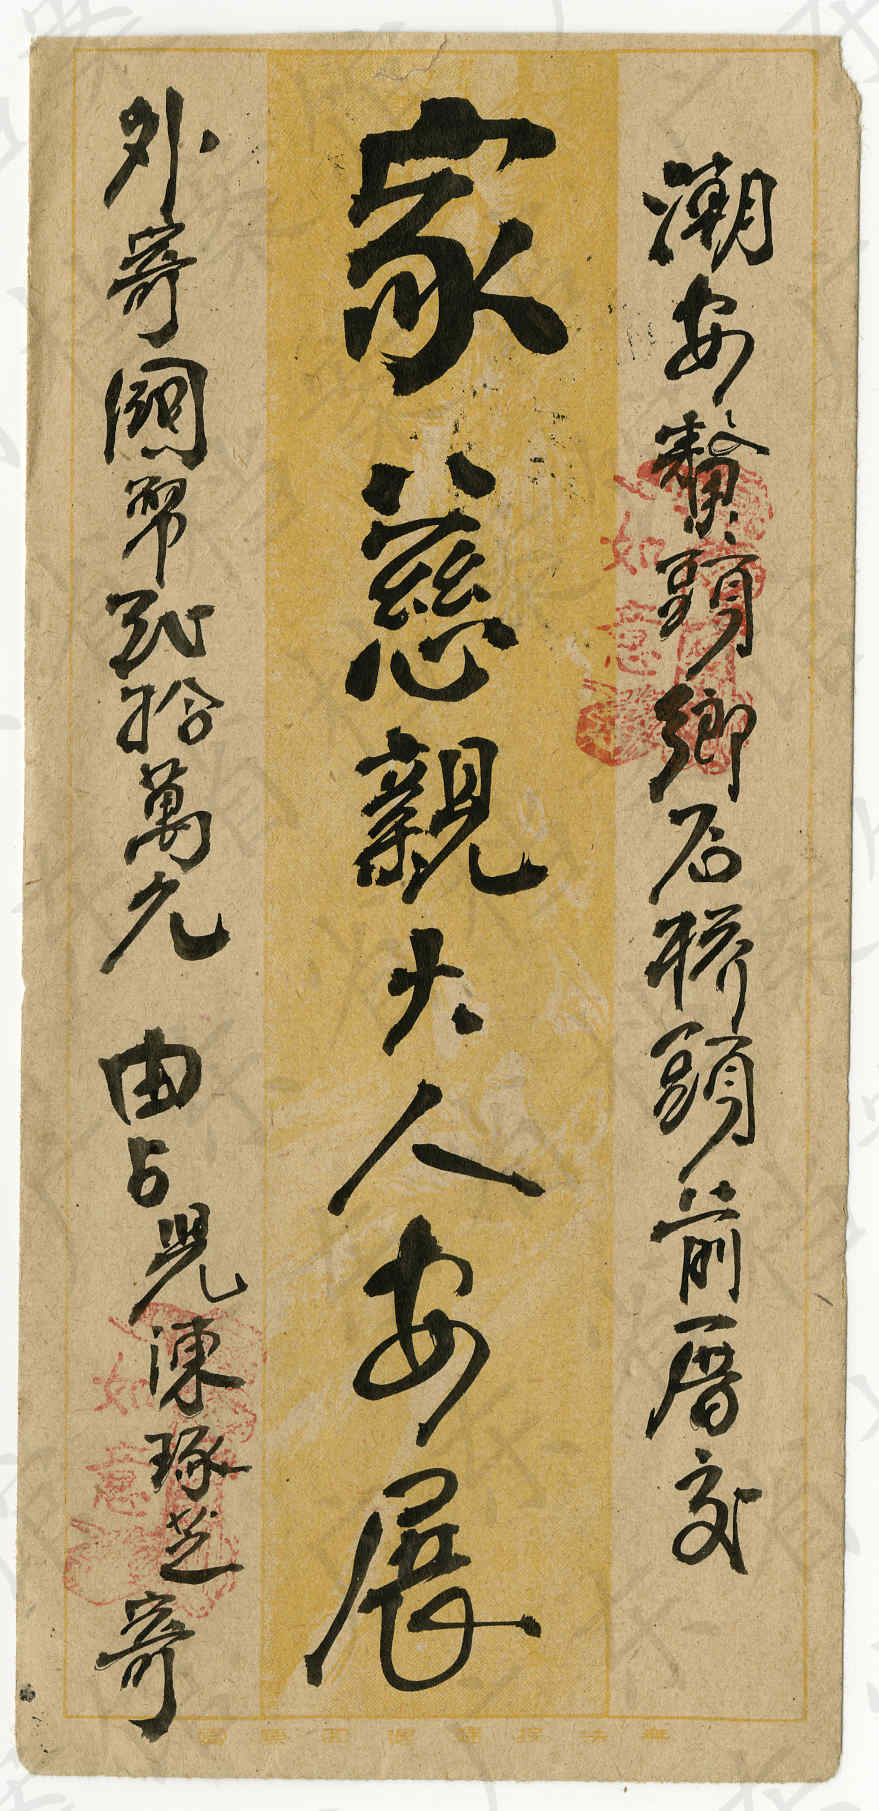 潮安鰲頭鄉石橋頭前厝交
家慈親大人安展
外寄國幣弍拾萬元 由占兒陳琢芝寄
如意
如意